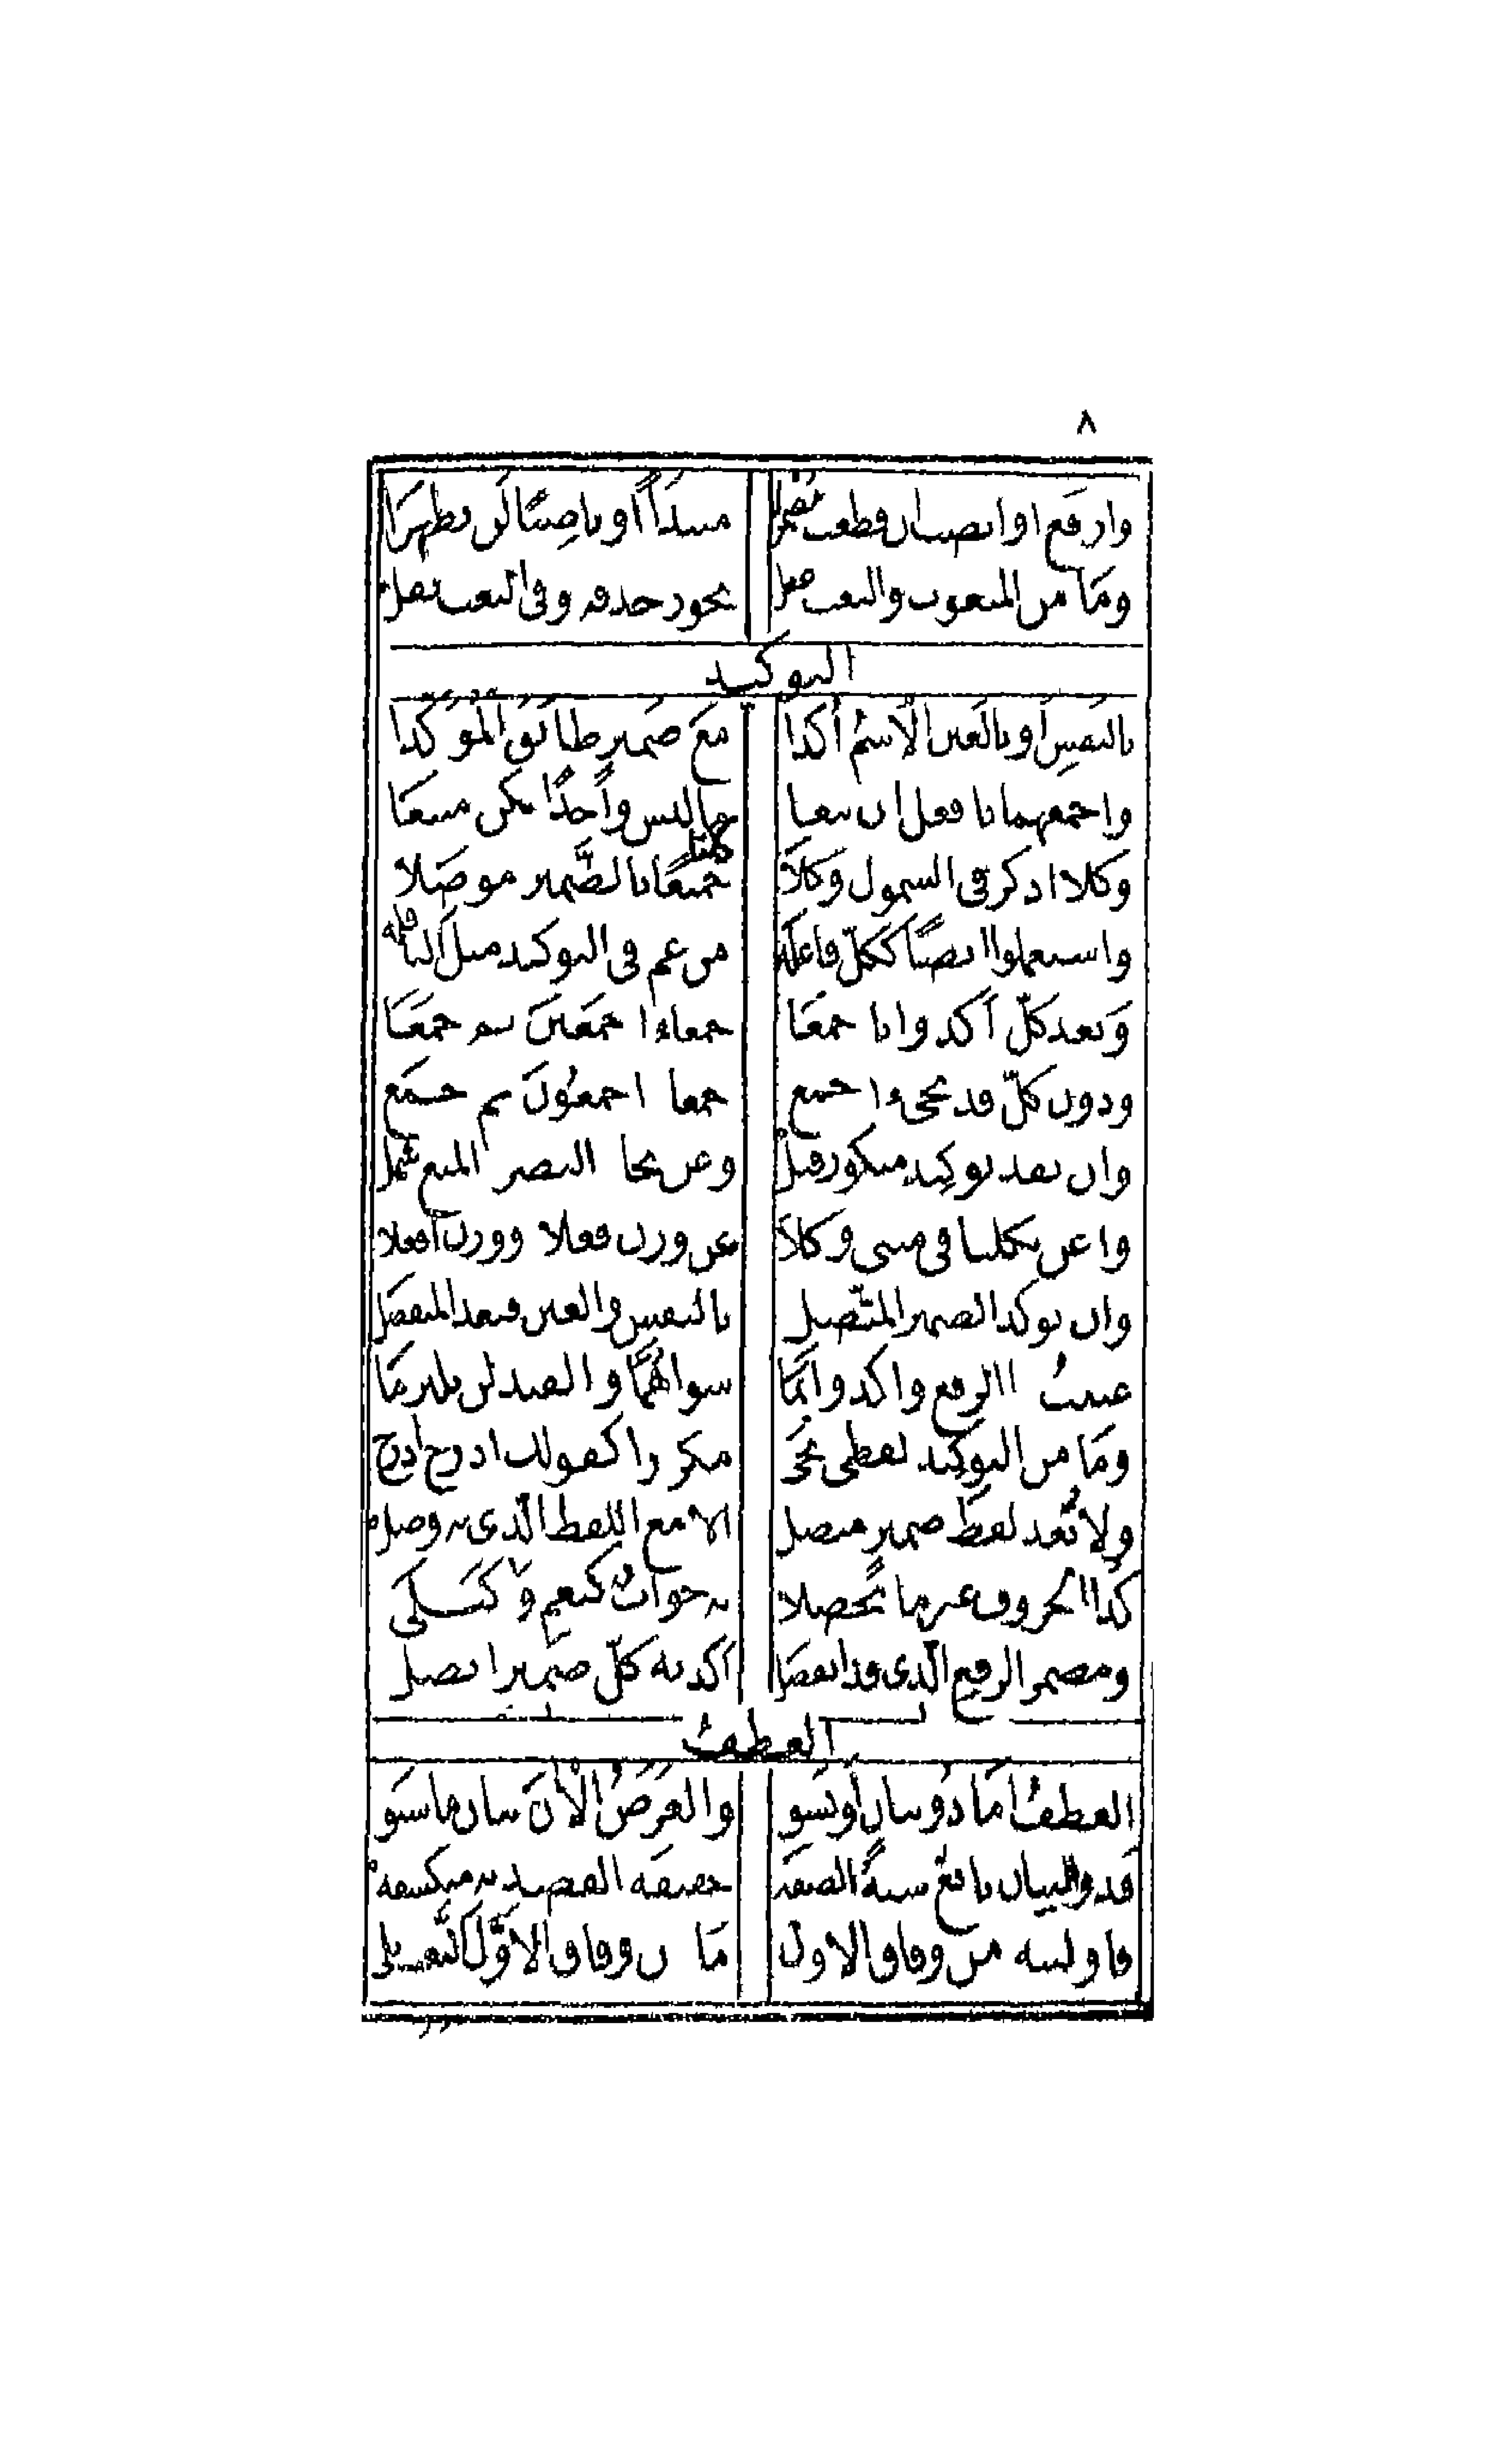 ٨
وارفع او انصب ان قطعت مضمرا مبتدأ او ناصبًا لن يظهرا
وما من المنعوت والنعت عقل يجوز حذفه وفى النعت يقل
التوكيد
بالنفس او بالعين الاسم اكدا مع ضمير طابق المؤكدا
واجمعهما بافعل ان تبعا ما ليس واحدًا تكن متبعا
وكلا اذكر فى الشمول وكلا كلتا جميعًا بالضّمير موصلا
واستعملوا ايضًا ككلّ فاعله من عم فى التوكيد مثل النافله
وبعد كلّ اكدوا باجمعا جمعاء اجمعين ثم جمعا
ودون كلّ قد يجىء اجمع جمعا اجمعون ثم جمع
وان يفد توكيد منكور قبل وعن نحا البصر المنع شمل
واغن بكلتا فى مثنى وكلا عن وزن فعلا ووزن افعلا
وان توكد الضمير المتّصل بالنفس والعين فبعد المنفصل
عنيت ذا الرفع واكدوا بما سواهما والقيد لن يلتزما
وما من التوكيد لفظى يجى مكررا كقولك ادرج ادرج
ولا تُعد لفظ ضمير متصل الا مع اللفظ الّذى به وصل
كذا الحروف غير ما تحصلا به جواب كنعم وكبلى
ومضمر الرفع الّذى قد انفصل اكد به كلّ ضمير اتصل
العطف
العطف اما ذو بيان او نسق والغرض الآن بيان ما سبق
فذو البيان تابع شبه الصفه حقيقة القصد به منكشفه
فاولينه من وفاق الاول ما من وفاق الاوّل النّعت يلى